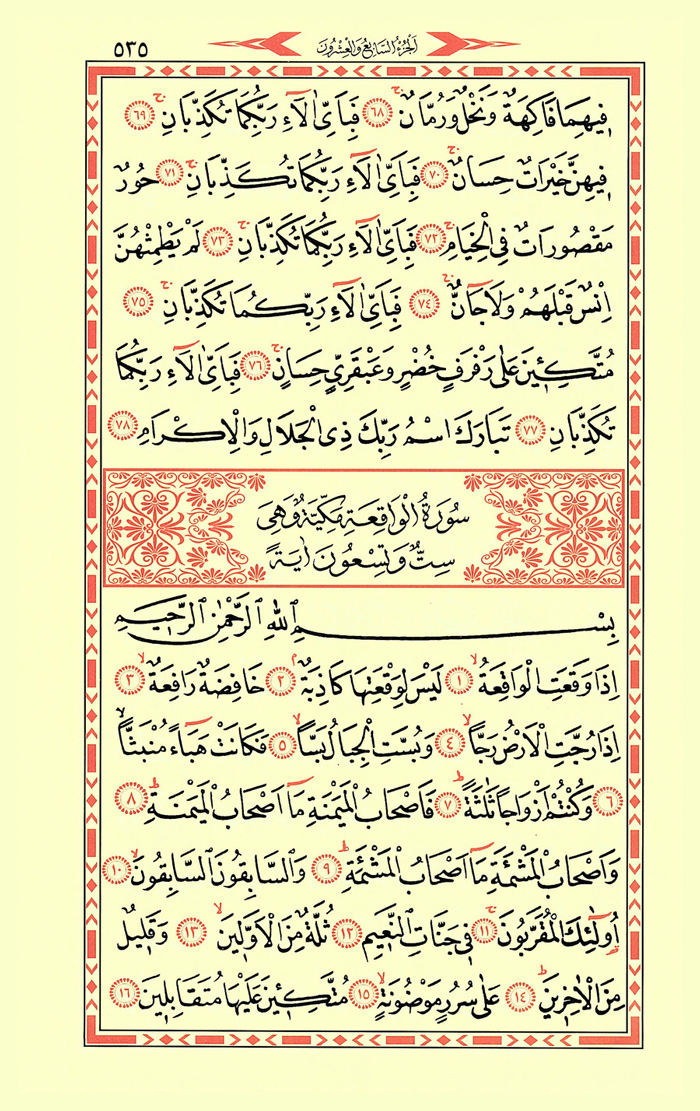 اَلْجُزْءُ السَّابِعُ وَالْعِشْرُونَ ٥٣٥
فِيهِمَا فَاكِهَةٌ وَنَخْلٌ وَرُمَّانٌ ﴿٦٨﴾ فَبِاَيِّ اٰلَٓاءِ رَبِّكُمَا تُكَذِّبَانِ ﴿٦٩﴾
فِيهِنَّ خَيْرَاتٌ حِسَانٌ ﴿٧٠﴾ فَبِاَيِّ اٰلَٓاءِ رَبِّكُمَا تُكَذِّبَانِ ﴿٧١﴾ حُورٌ
مَقْصُورَاتٌ فِي الْخِيَامِ ﴿٧٢﴾ فَبِاَيِّ اٰلَٓاءِ رَبِّكُمَا تُكَذِّبَانِ ﴿٧٣﴾ لَمْ يَطْمِثْهُنَّ
اِنْسٌ قَبْلَهُمْ وَلَا جَٓانٌّ ﴿٧٤﴾ فَبِاَيِّ اٰلَٓاءِ رَبِّكُمَا تُكَذِّبَانِ ﴿٧٥﴾
مُتَّكِـِٔينَ عَلٰى رَفْرَفٍ خُضْرٍ وَعَبْقَرِيٍّ حِسَانٍ ﴿٧٦﴾ فَبِاَيِّ اٰلَٓاءِ رَبِّكُمَا
تُكَذِّبَانِ ﴿٧٧﴾ تَبَارَكَ اسْمُ رَبِّكَ ذِي الْجَلَالِ وَالْاِكْرَامِ ﴿٧٨﴾
سُورَةُ الْوَاقِعَةِ مَكِّيَّةٌ وَهِيَ
سِتٌّ وَتِسْعُونَ اٰيَةً
بِسْمِ اللّٰهِ الرَّحْمٰنِ الرَّحِيمِ
اِذَا وَقَعَتِ الْوَاقِعَةُ ﴿١﴾ لَيْسَ لِوَقْعَتِهَا كَاذِبَةٌ ﴿٢﴾ خَافِضَةٌ رَافِعَةٌ ﴿٣﴾
اِذَا رُجَّتِ الْاَرْضُ رَجًّا ﴿٤﴾ وَبُسَّتِ الْجِبَالُ بَسًّا ﴿٥﴾ فَكَانَتْ هَبَٓاءً مُنْبَثًّا
﴿٦﴾ وَكُنْتُمْ اَزْوَاجًا ثَلٰثَةً ﴿٧﴾ فَاَصْحَابُ الْمَيْمَنَةِ مَٓا اَصْحَابُ الْمَيْمَنَةِ ﴿٨﴾
وَاَصْحَابُ الْمَشْـَٔمَةِ مَٓا اَصْحَابُ الْمَشْـَٔمَةِ ﴿٩﴾ وَالسَّابِقُونَ السَّابِقُونَ ﴿١٠﴾
اُو۬لٰٓئِكَ الْمُقَرَّبُونَ ﴿١١﴾ فِي جَنَّاتِ النَّعِيمِ ﴿١٢﴾ ثُلَّةٌ مِنَ الْاَوَّلِينَ ﴿١٣﴾ وَقَلِيلٌ
مِنَ الْاٰخِرِينَ ﴿١٤﴾ عَلٰى سُرُرٍ مَوْضُونَةٍ ﴿١٥﴾ مُتَّكِـِٔينَ عَلَيْهَا مُتَقَابِلِينَ ﴿١٦﴾